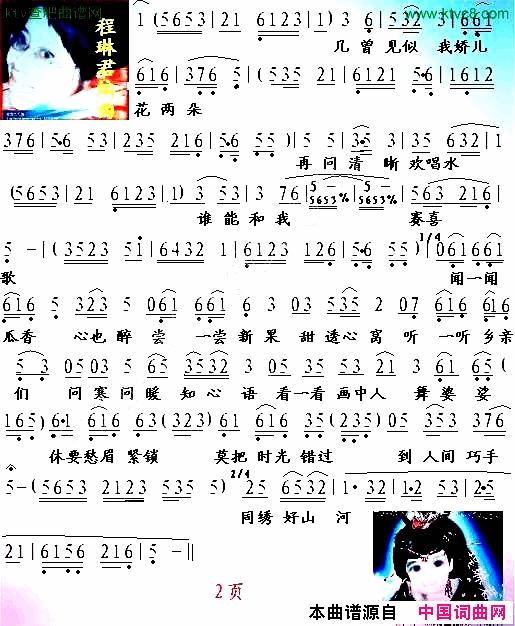 ktv查吧曲谱网
www.ktvc8.com
程琳君
1 (5653 | 21 6123 | 1) 3 6 | 53 32 3
几曾见似 我娇儿
616 | (376 | 2 - | 5·6 53 | 2123 5·6) | 1612
花两朵
376 | 5·6 53 | 235 216 | 5·6 55) | 5 5 | 3·5 3 5 632 | 1
再问清晰欢唱水
(5653 | 21 6123 | 1) 3 53 | 3 76 | 5 - 5653% | 5 - 5653% | 563 216 |
谁能和我 赛喜
5 - | (3523 51 | 6432 1 | 6123 126 | 5·6 55) | 1/4 061 661 |
歌 闻一闻
616 5 323 5 061 661 6 03 535 2 07 616 061
瓜香 心也醉 尝一尝新果 甜透心窝 听一听乡亲
5 3 03 5 03 5 65 3532 3 05 35 35 21 3 61 65
们 问寒问暖 知心语 看一看画中人 舞婆娑
165) 6·1 616 63 (63) 616 616 35 (235) 05 353 376
休要愁眉紧锁 莫把时光错过 到人间巧手
5 - (5653 2123 535 5) 2/4 25 6532 | 1· 32 | 1·2 53
同绣好山河
21 | 6156 216 | 5 - ‖
2页
本曲谱源自 中国词曲网